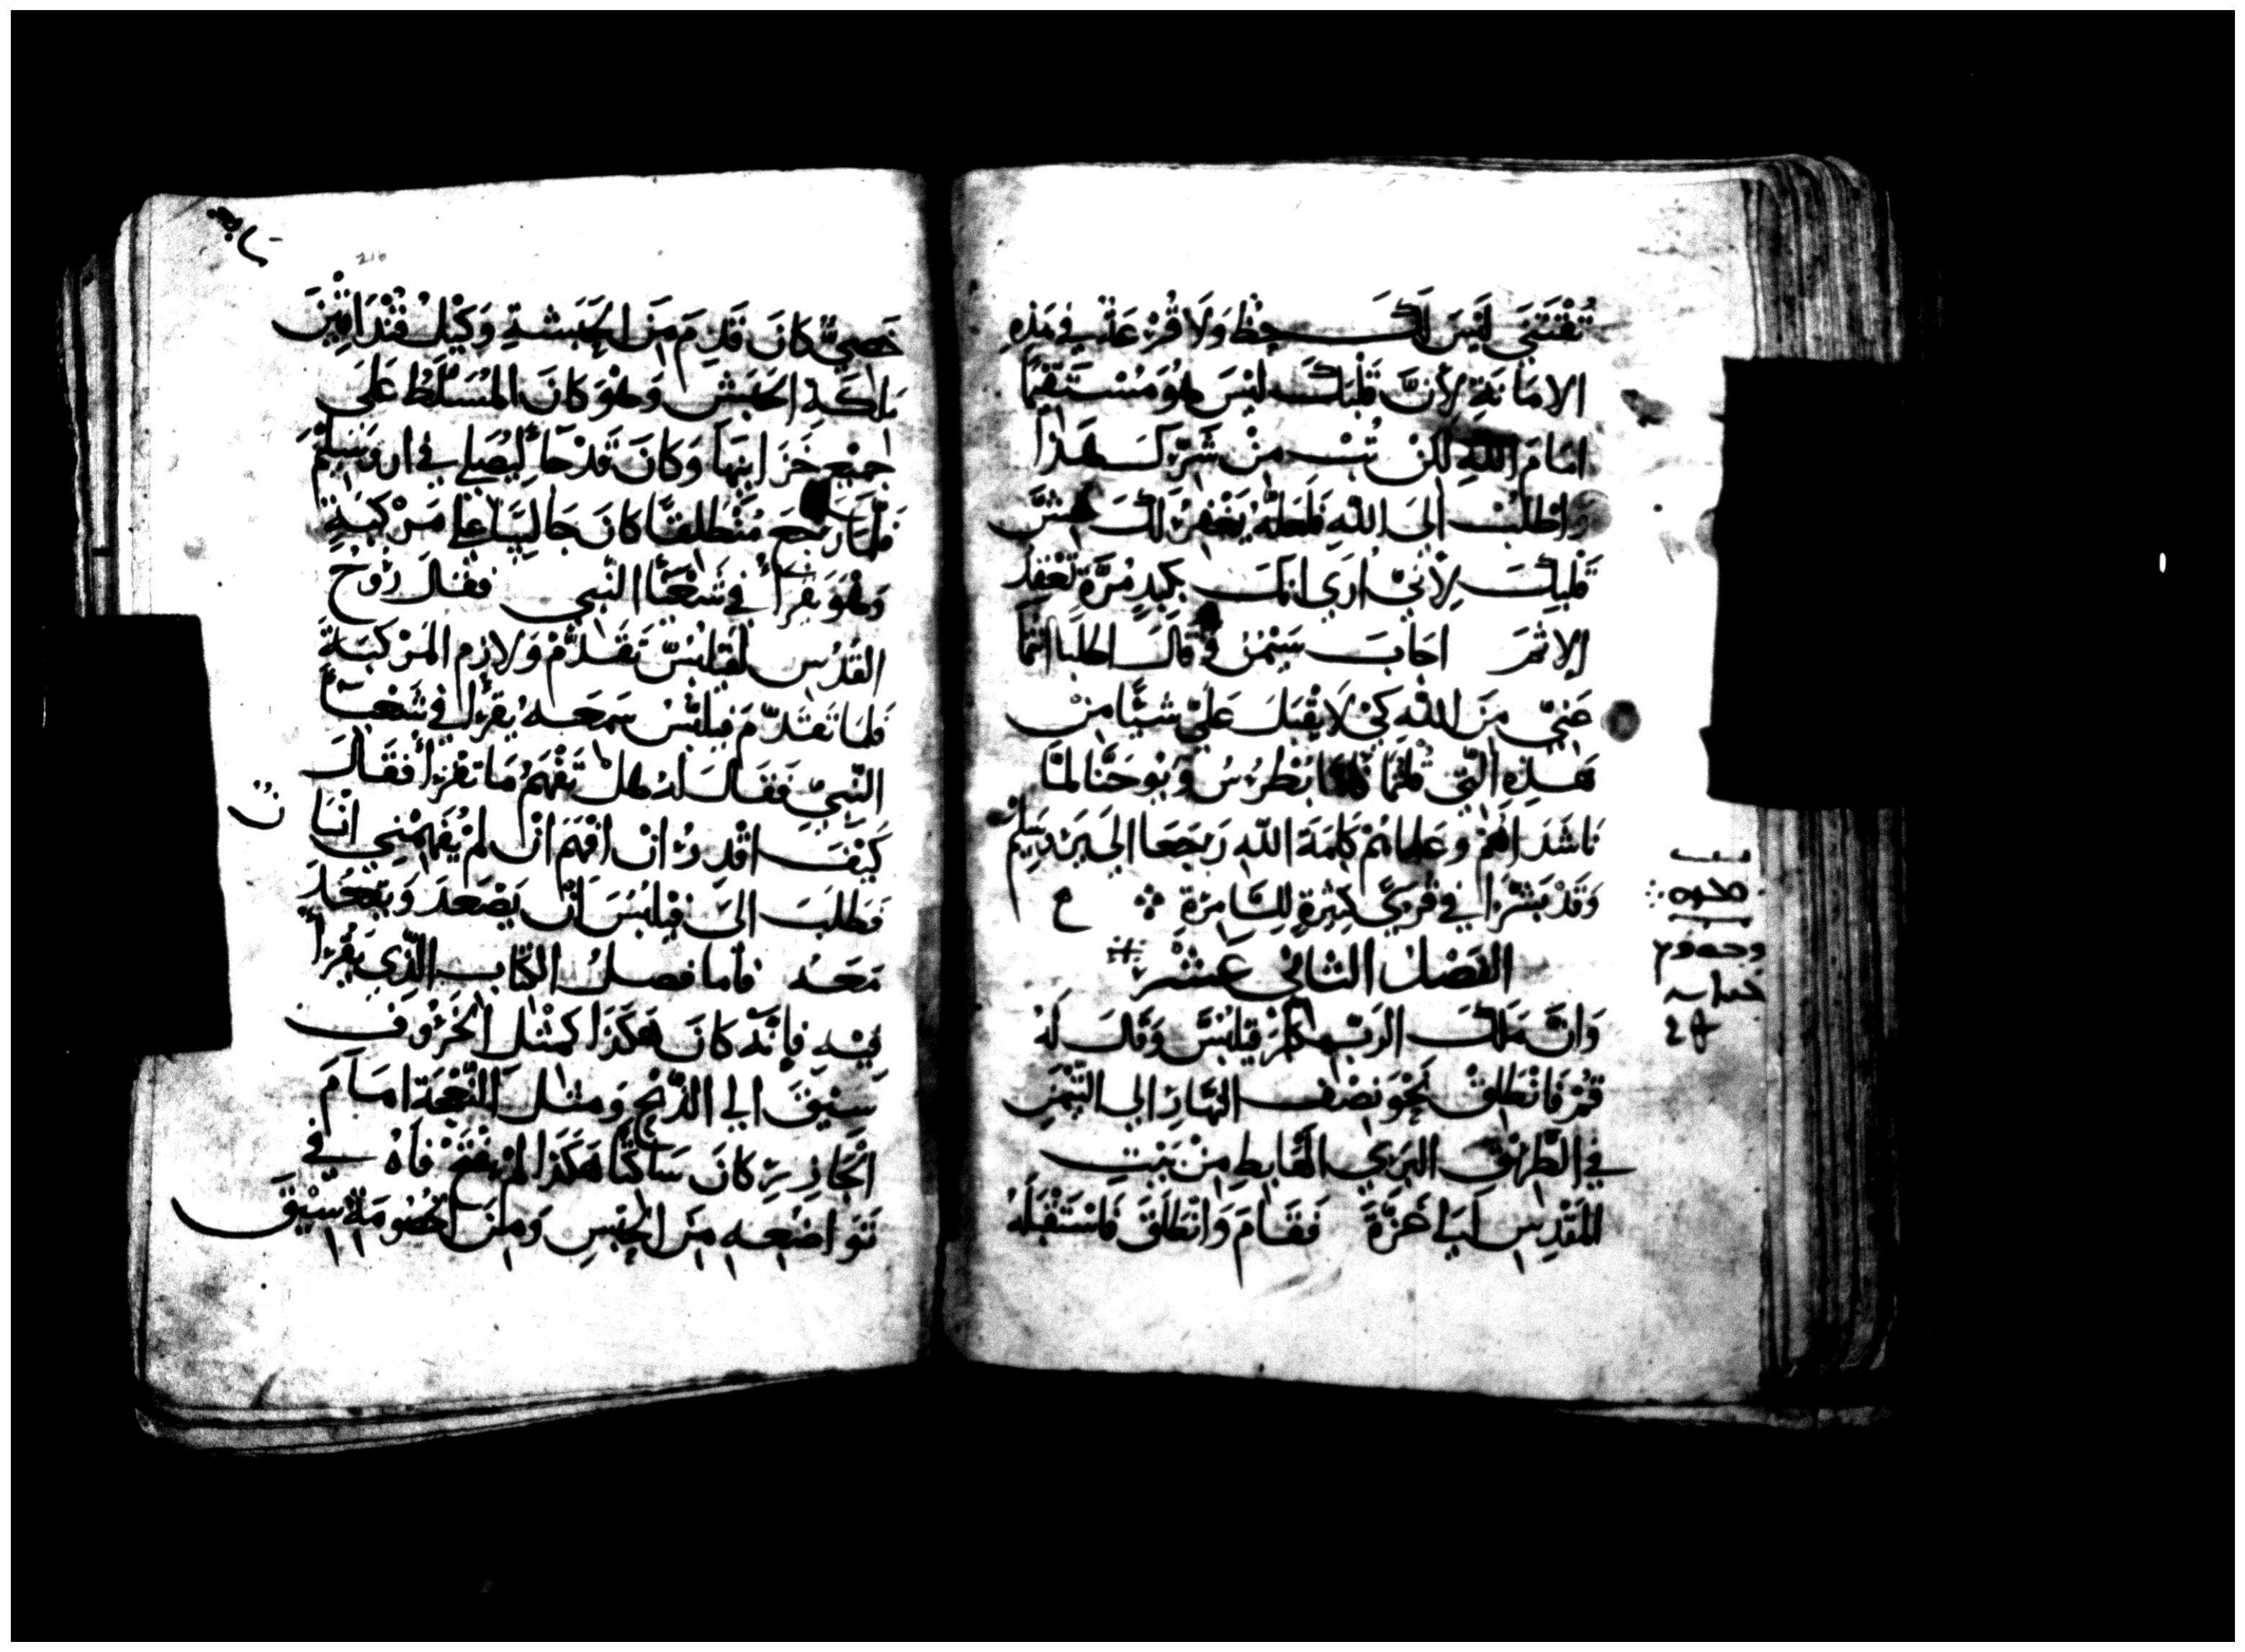 تُقْتَنَى لَيْسَ لَكَ حِظ وَلَا قُرْعَة فِي هَذِهِ
الامَانَةِ لِأَنَّ قَلْبَكَ لَيْسَ هُوَ مُسْتَقِيمًا
امَامَ اللهِ لَكِنْ تُبْ مِنْ شَرِّكَ هَذَا
وَاطْلُبْ الَى اللهِ فَلَعَلَّهُ يَغْفِرُ لَكَ غِشَّ
قَلْبِكَ لِأَنِّي ارَي انكَ بكبدٍ مُرَّةٍ
الاثمَ اجابَ سِيمُن وَقَالَ اطلبَا انتما
عَنِّي مِنَ اللهِ كَيْ لَا يُقْبِلَ عَلَيَّ شَيًّا مِنْ
هَذِهِ الَّتِي قلتما فَامَّا بُطْرُسُ وَيُوحَنَّا لمَّا
نَاشَدَاهُمْ وَعَلمَاهُمْ كَلِمَةَ اللهِ رَجَعَا الَى يَرُوسَلِيمْ
وَقَدْ بَشَّرَا فِي قُرَيً كَثِيرَةٍ لِلسَّامِرَةِ ع
الفَصْلُ الثَاني عَشَرْ
وَانَّ مَلَكَ الرَبِّ كَلَّمَ فِيلِبُسَّ وَقَالَ لَهُ
قُمْ فَانْطَلِقْ نَحْوَ نِصْفِ النَهَارِ الى التَّيْمَنِ
فِي الطَّرِيْقِ البَرِّيِ الهَابِطِ مِنْ بَيْتِ
المَقْدِسِ الَى غَزَّةَ فَقَامَ وَانْطَلَقَ فَاسْتَقْبَلَهُ
خَصِيٌّ كَانَ قَدِمَ مِنَ الحَبَشَةِ وَكِيْلُ قَنْدَاقِينَ
مَلِكَةِ الحَبَشِ وَهُوَ كَانَ المُسَلَّطُ عَلَى
جَمِيْعِ خَزَاينِهَا وَكَانَ قَدْ جَا لِيُصَلِي فِي اورُوسَلِيمَ
فَلَمَّا رَجَعَ مُنْطَلِقًا كَانَ جَالِسًا عَلى مَرْكَبَةٍ
وَهُوَ يَقْرَأُ فِي شَعْيَا النَّبِي فَقَالَ رُوحُ
القُدُسِ لفيلِبُسَّ تَقَدَّمْ وَلازِمِ المَرْكَبَةَ
فَلَمَا تَقَدَّمَ فِيلِبُّسُ سَمِعَه يُقرَأ في شَعْيَا
النَّبِيِّ فَقَالَ لَهُ هَلْ تَفْهَمُ مَا تَقْرَأُ فَقَالَ
كَيْفَ اقْدِرُ انْ افْهَمَ انْ لَمْ يُفَهِّمْنِي انْسَا
ن
فَطَلَبَ الَى فِيلِبُسَ انْ يَصْعَدَ وَيَقْعُدَ
مَعَهُ فَأما فصلُ الكِتَابِ الَّذِي يَقْرَأ
فِيْهِ فَانَّهُ كَانَ هَكَذَا كَمِثْلِ الخَرُوفِ
سِيْقَ الى الذَّبْحِ وَمثلَ النَّعْجَة امَامَ
الجَازِرِ كَانَ سَاكِتًا هَكَذَا لمْ يفتح فَاهُ فى
تَوَاضُعِه مِنَ الحَبْسِ وَمِنَ الخُصُومَةِ سِيْقَ